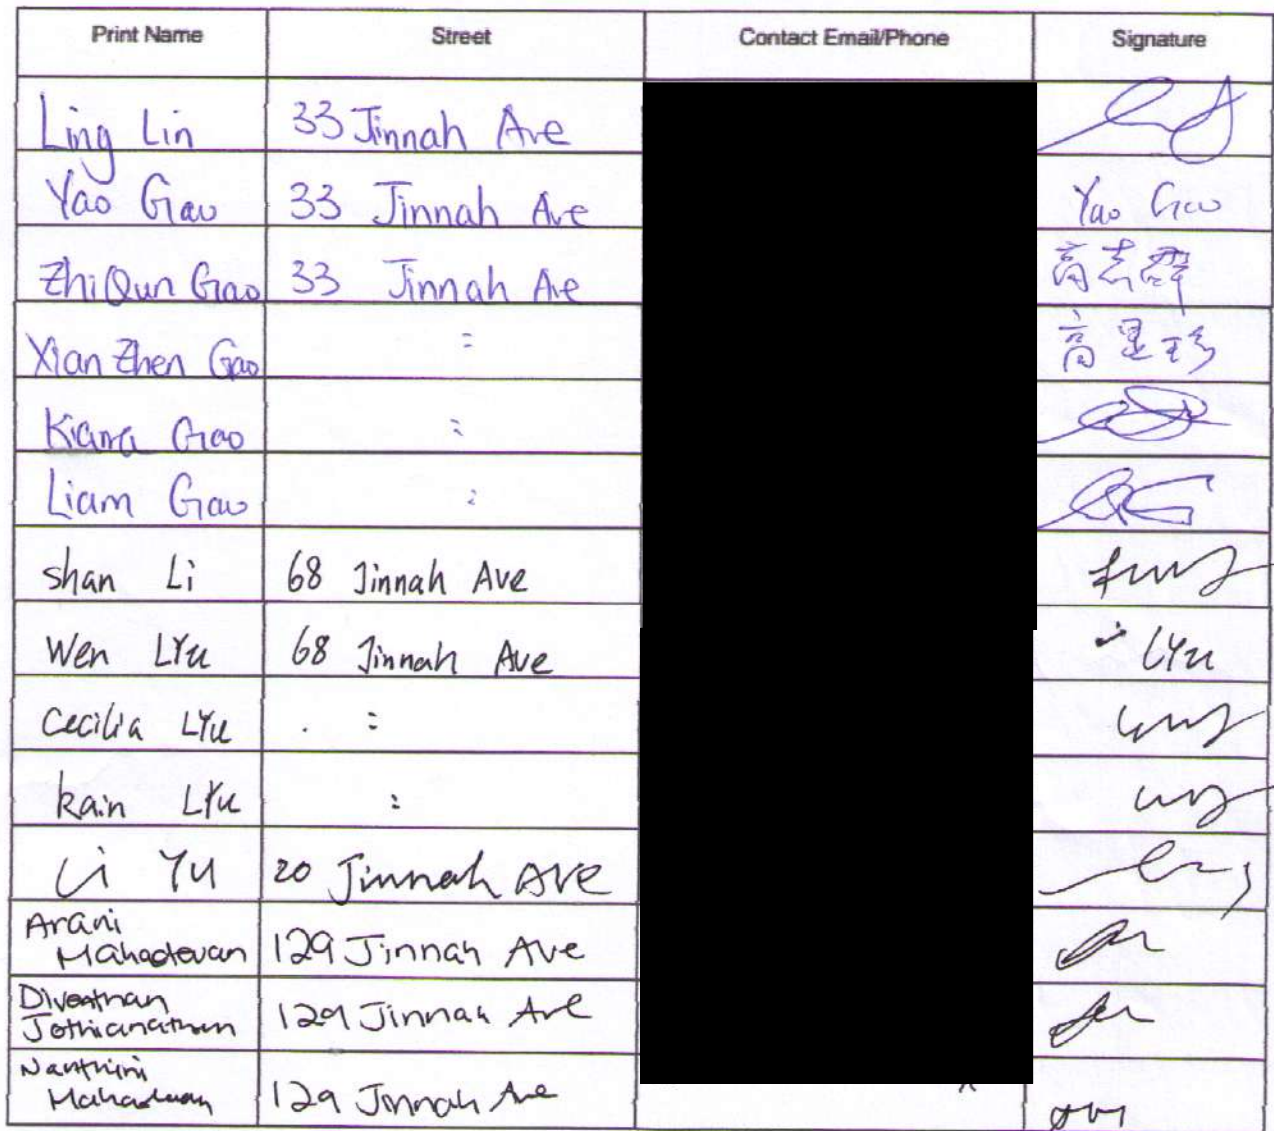 Print Name Street Contact Email/Phone Signature
Ling Lin 33 Jinnah Ave
Yao Gao 33 Jinnah Ave Yao Gao
ZhiQun Gao 33 Jinnah Ave 高志群
Xian Zhen Gao = 高显珍
Kiana Gao =
Liam Gao =
shan Li 68 Jinnah Ave
Wen LYu 68 Jinnah Ave LYu
Cecilia LYu =
kain LYu =
Li Yu 20 Jinnah Ave
Arani
Mahadevan 129 Jinnah Ave
Jothianathan 129 Jinnah Ave
Nanthini
Mahadevan 129 Jinnah Ave